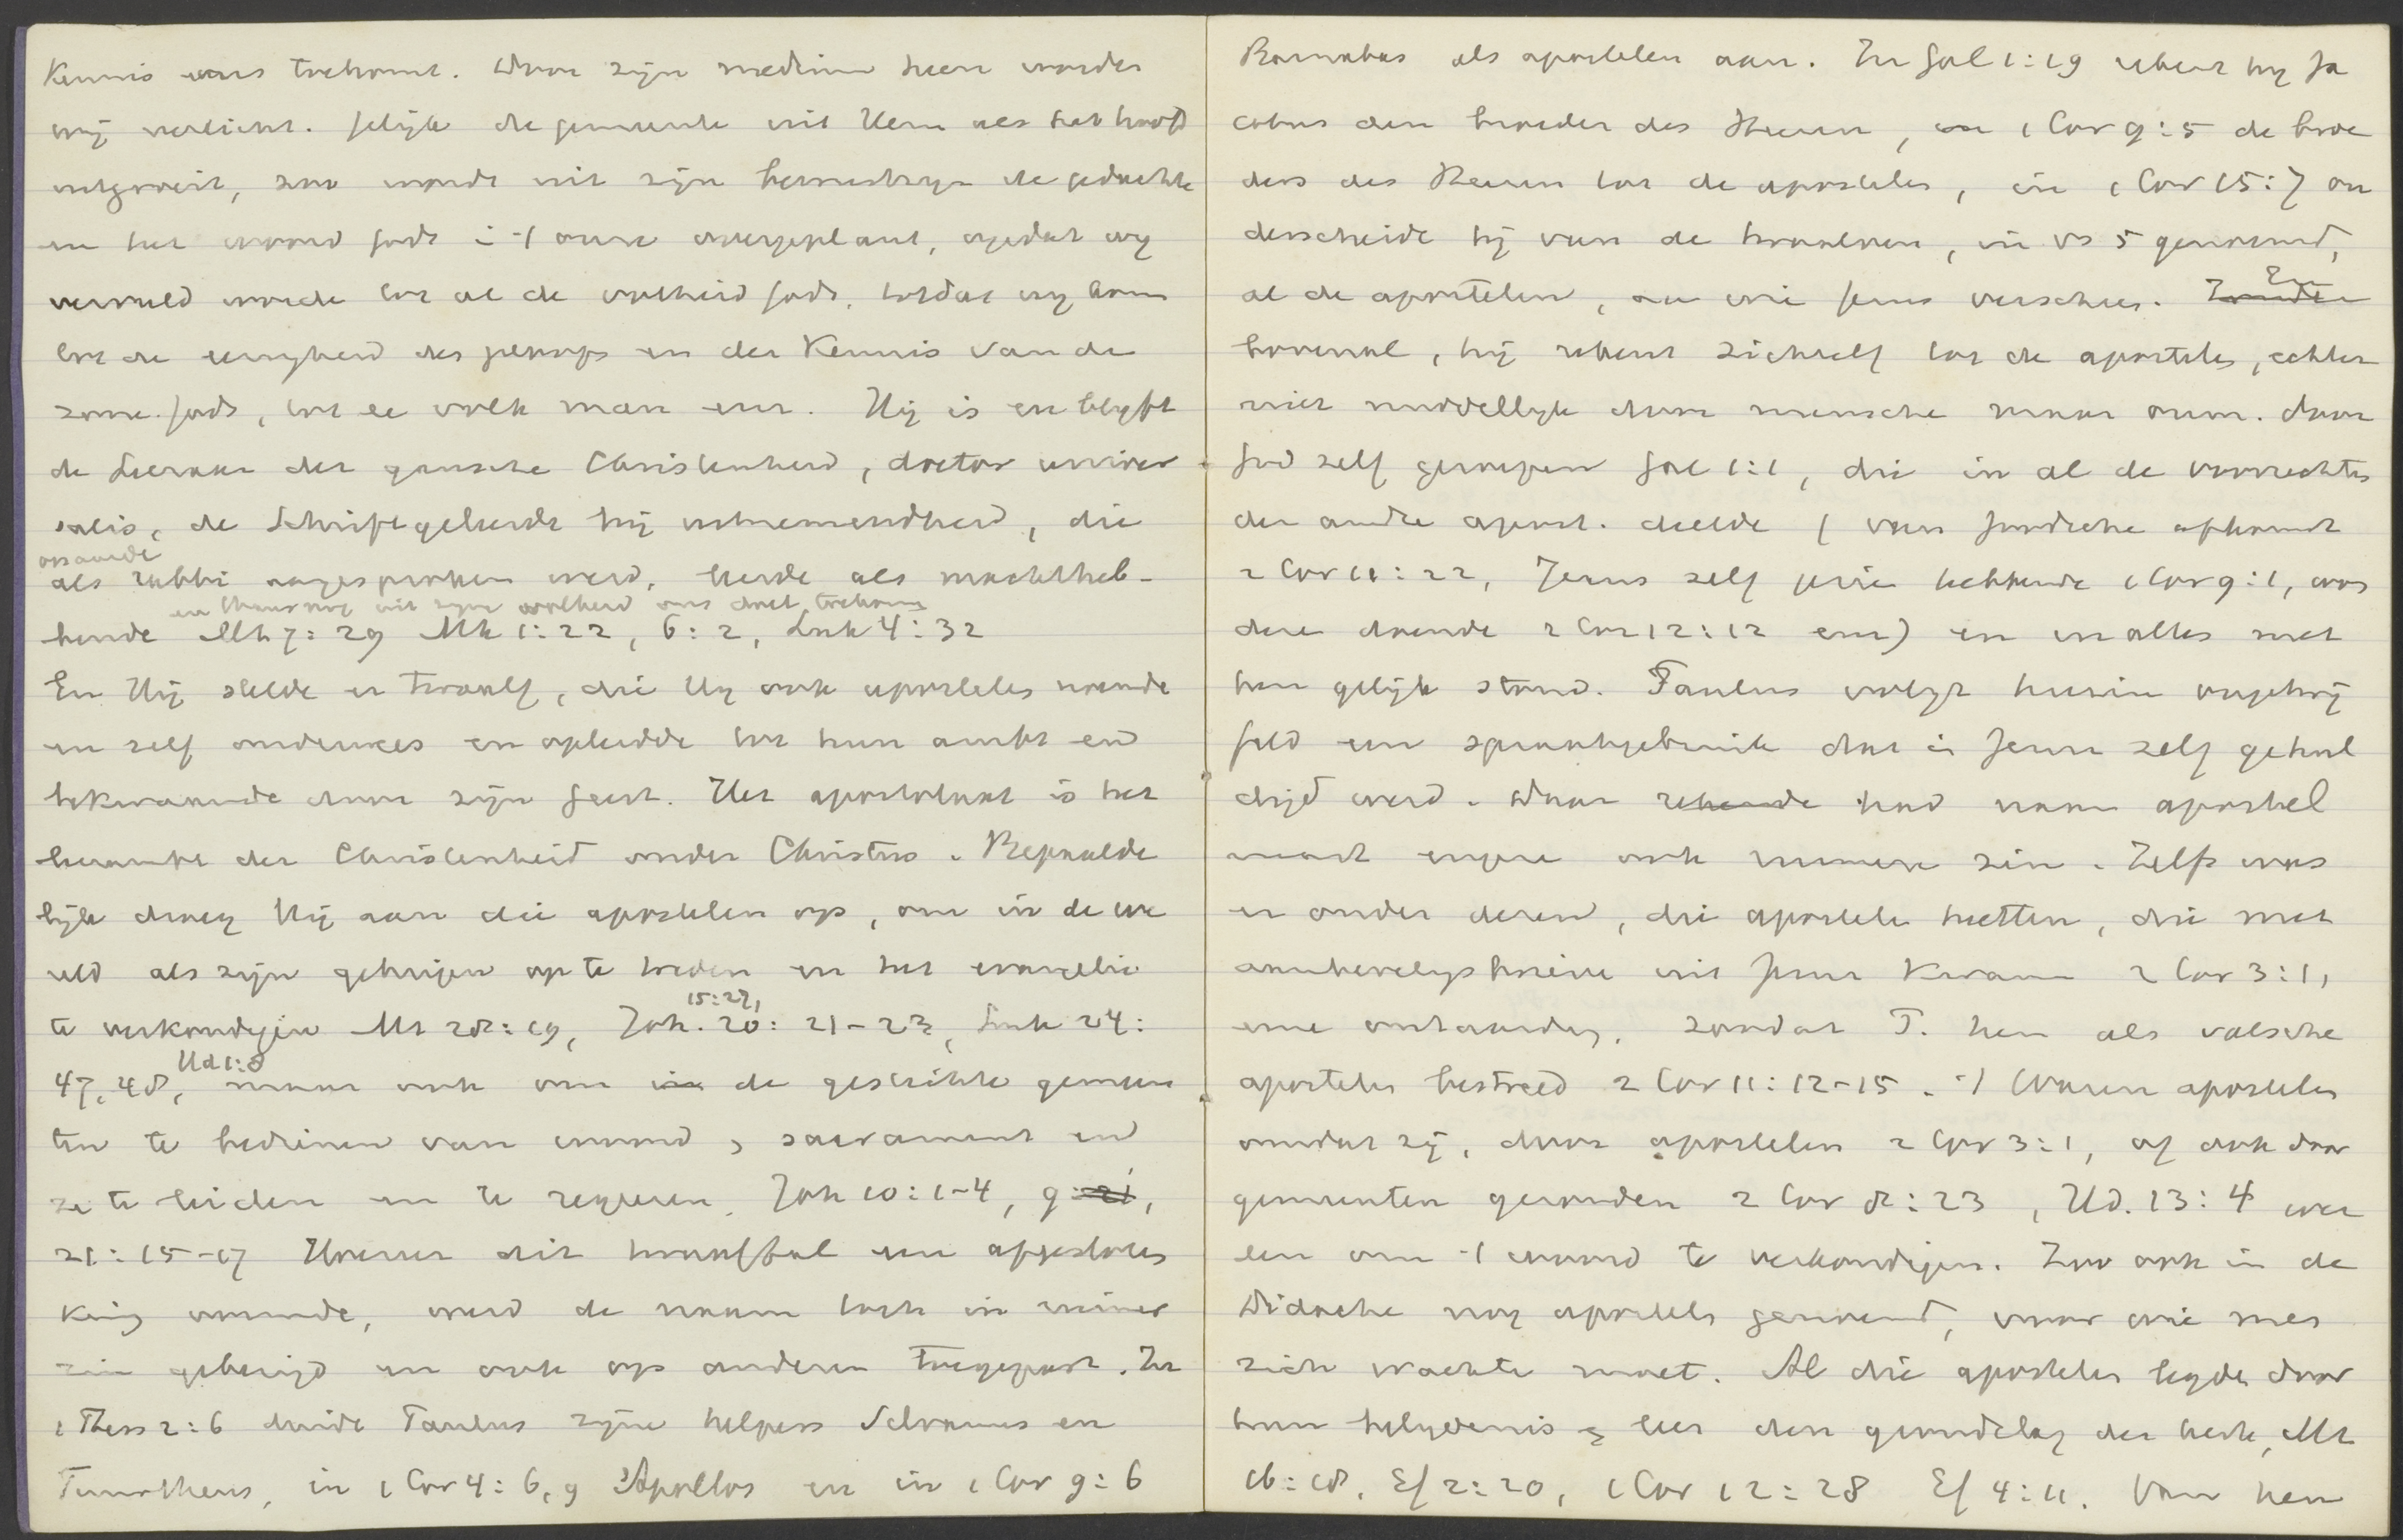 Kennis ons toekomt. Door zijn medium heen worden
wij verlicht. Gelijk de gemeente uit Hem als het hoofd
uitgroeit, zoo wordt uit zijn bewustzijn de gedachte
en het woord Gods in 't onze overgeplant, opdat wij
vervuld worde tot al de volheid Gods, totdat wij kom
tot de eenigheid des geloofs en der Kennis van de
zone Gods, tot ee volk man enz. Hij is en blijft
de Leeraar der gansche Christenheid, doctor univer
salis, de Schriftgeleerde bij uitnemendheid, die
op aarde
als rabbi aangesproken werd, leerde als machtheb-
en thans nog uit zijne volheid ons doet toekome
bende Mt 7:29 Mk 1:22, 6:2, Luk 4:32
En Hij stelde er twaalf, die Hij ook apostelen noemde
en zelf onderwees en opleidde tot hun ambt en
bekwaamde door zijn Geest. Het apostolaat is het
leerambt der Christenheid onder Christus. Bepaalde
lijk droeg Hij aan die apostelen op, om in de we
reld als zijn getuigen op te treden en het evangelie
15:27,
te verkondigen Mt 28:19, Joh. 20:21-23, Luk 24:
Hd 1:8
47,48, maar ook om de gestichte gemeen
ten te bedienen van woord, sacrament en
ze te leiden en te regeeren. Joh 10:1-4, 9,
21:15-17 Hoewel dit twaalftal een afgesloten
kring vormde, werd de naam toch in ruimer
zin gebezigd en ook op anderen toegepast. In
1 Thess 2:6 duidt Paulus zijne helpers Silvanus en
Timotheus, in 1 Cor 4:6,9 Apollos en in 1 Cor 9:6
Barnabas als apostelen aan. In Gal 1:19 rekent hij Ja
cobus den broeder des Heeren, en 1 Cor 9:5 de broe
ders des Heeren tot de apostelen, in 1 Cor 15:7 on
derscheidt hij van de twaalven, in vs 5 genoemd,
al de apostelen, aan wie Jezus verscheen. En
bovenal, hij rekent zichzelf tot de apostelen, echter
niet middellijk door mensche maar onm. door
God zelf geroepen Gal 1:1, die in al de voorrechten
der andre apost. deelde (van Joodsche afkomst
2 Cor 11:22, Jezus zelf gezien hebbende 1 Cor 9:1, won
dere doende 2 Cor 12:12 enz) en in alles met
hen gelijk stond. Paulus volgt hierin ongetwij
feld een spraakgebruik dat in Jeruz zelf gehul
digd werd. Daar had naam apostel
naast engere ook ruimere zin. Zelfs was
er onder dezen, die apostelen heetten, die met
aanbevelingsbrieven uit Jeruz kwam 2 Cor 3:1,
zoodat P. hen als valsche
apostelen bestreed 2 Cor 11:12-15. 't Waren apostelen
omdat zij, door apostelen 2 Cor 3:1, of ook door
gemeenten gezonden 2 Cor 8:23, Hd. 13:4 wer
den om 't woord te verkondigen. Zoo ook in de
Didache nog apostels genoemd, voor wie men
zich wachte moet. Al die apostelen legden door
hun belijdenis en leer den grondslag der kerk, Mt
16:18, Ef 2:20, 1 Cor 12:28 Ef 4:11. Van hen